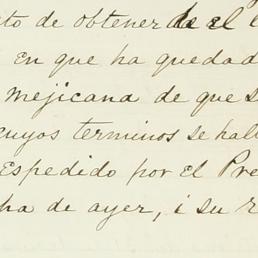 to de obtener de el
en que ha quedad
mejicana de que s
cuyos terminos se hall
espedido por el Pre
ha de ayer, i su r